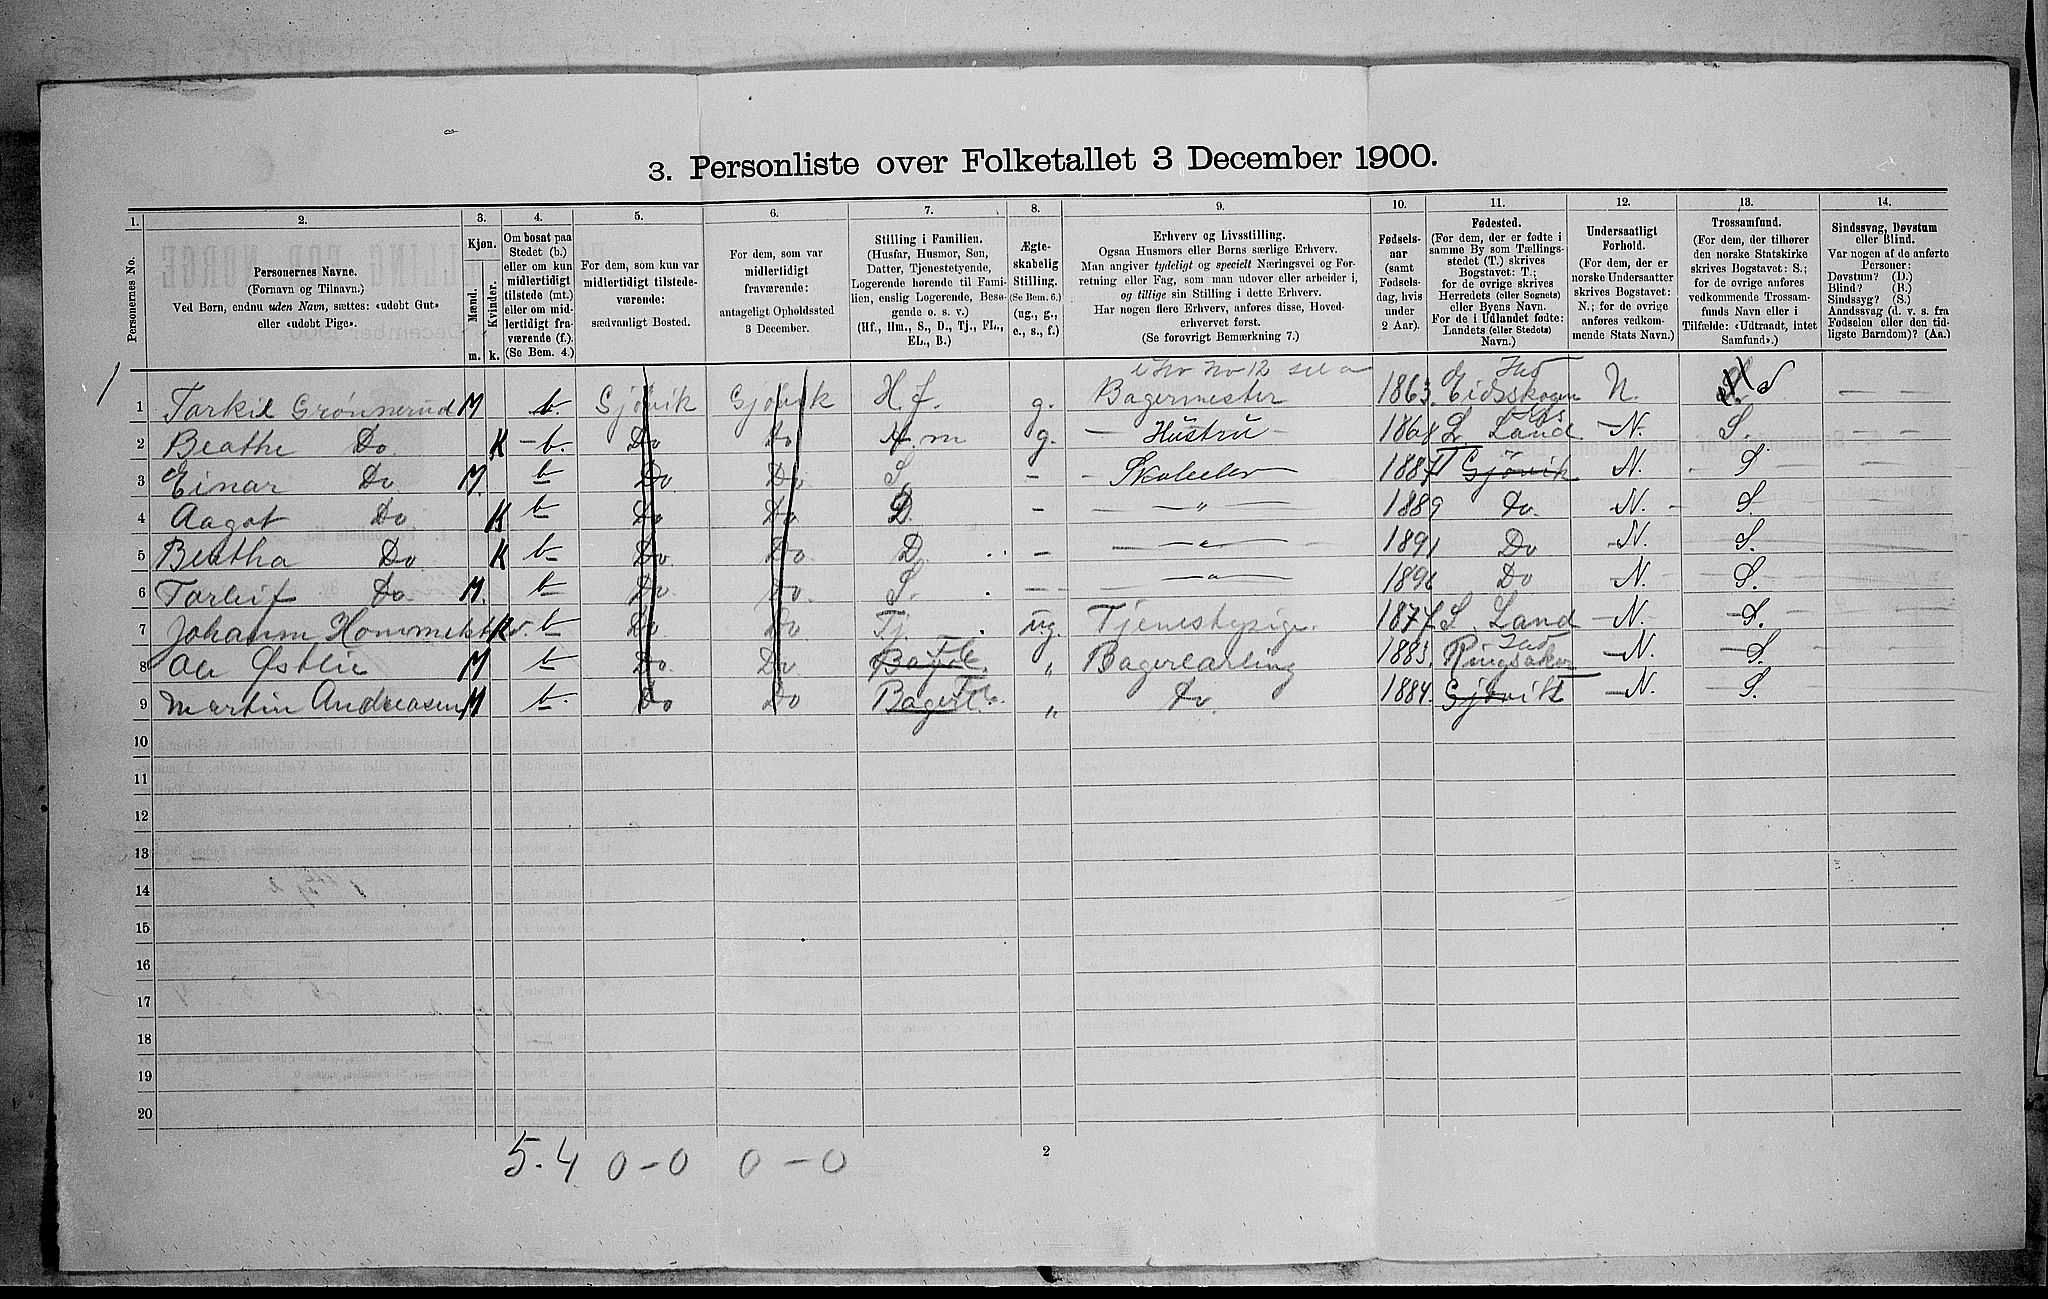 3. Personliste over Folketallet 3 December 1900.
1. 2. 3. 4. 5. 6. 7. 8. 9. 10. 11. 12. 13. 14.
Personernes No.
Personernes Navne.
(Fornavn og Tilnavn.)
Ved Børn, endnu uden Navn, sættes: «udøbt Gut»
eller «udøbt Pige».
Kjøn.
Mænd.
Kvinder.
m. k.
Om bosat paa
Stedet (b.)
eller om kun
midlertidigt
tilstede (mt.)
eller om mid-
lertidigt fra-
værende (f.).
(Se Bem. 4.)
For dem, som kun var
midlertidigt tilstede-
værende:
sædvanligt Bosted.
For dem, som var
midlertidigt
fraværende:
antageligt Opholdssted
3 December.
Stilling i Familien.
(Husfar, Husmor, Søn,
Datter, Tjenestetyende,
Logerende hørende til Fami-
lien, enslig Logerende, Besø-
gende o. s. v.)
(Hf., Hm., S., D., Tj., FL.,
EL., B.)
Ægte-
skabelig
Stilling.
(Se Bem. 6.)
(ug., g.,
e., s., f.)
Erhverv og Livsstilling.
Ogsaa Husmors eller Børns særlige Erhverv.
Man angiver tydeligt og specielt Næringsvei og For-
retning eller Fag, som man udøver eller arbeider i,
og tillige sin Stilling i dette Erhverv.
Har nogen flere Erhverv, anføres disse, Hoved-
erhvervet først.
(Se forøvrigt Bemærkning 7.)
Fødsels-
aar
(samt
Fødsels-
dag, hvis
under
2 Aar).
Fødested.
(For dem, der er fødte i
samme By som Tællings-
stedet (T.) skrives
Bogstavet: T.;
for de øvrige skrives
Herredets (eller Sognets)
eller Byens Navn.
For de i Udlandet fødte:
Landets (eller Stedets)
Navn.)
Undersaatligt
Forhold.
(For dem, der er
norske Undersaatter
skrives Bogstavet:
N.; for de øvrige
anføres vedkom-
mende Stats Navn.)
Trossamfund.
(For dem, der tilhører
den norske Statskirke
skrives Bogstavet: S.;
for de øvrige anføres
vedkommende Trossam-
funds Navn eller i
Tilfælde: «Udtraadt, intet
Samfund».)
Sindssvag, Døvstum
eller Blind.
Var nogen af de anførte
Personer:
Døvstum? (D.)
Blind? (B.)
Sindssyg? (S.)
Aandssvag (d. v. s. fra
Fødselen eller den tid-
ligste Barndom)? (Aa.)
1 Torkil Grønnerud M b. Gjøvik Gjøvik H.f. g. Bagermester 1863. Eidskogen N.
2 Beathe Do. K b. Do Do H m g. Hustru 1868 S. Land N. S.
3 Einar Do M. b Do Do S. - Skoleelev 1887 T Gjøvik N. S
4 Aagot Do K b Do Do D. - " 1889 Do. N. S.
5 Beatha Do K b Do. Do. D. - " 1891 Do N. S.
6 Torleif Do M. b Do. Do. S. - " 1896 Do N. S.
7 K b Do Do Tj. ug. Tjenestepige. 1877 S. Land N. S.
8 Ole Østlie M b Do. Do FL. " Bagerlærling 1883. Ringsaker N. S.
9 Martin Andreasen M b. Do Do Bagerl. FL. " Do. 1884. Gjøvik T N. S.
10
11
12
13
14
15
16
17
18
19
20
5.4 0-0 0-0
2